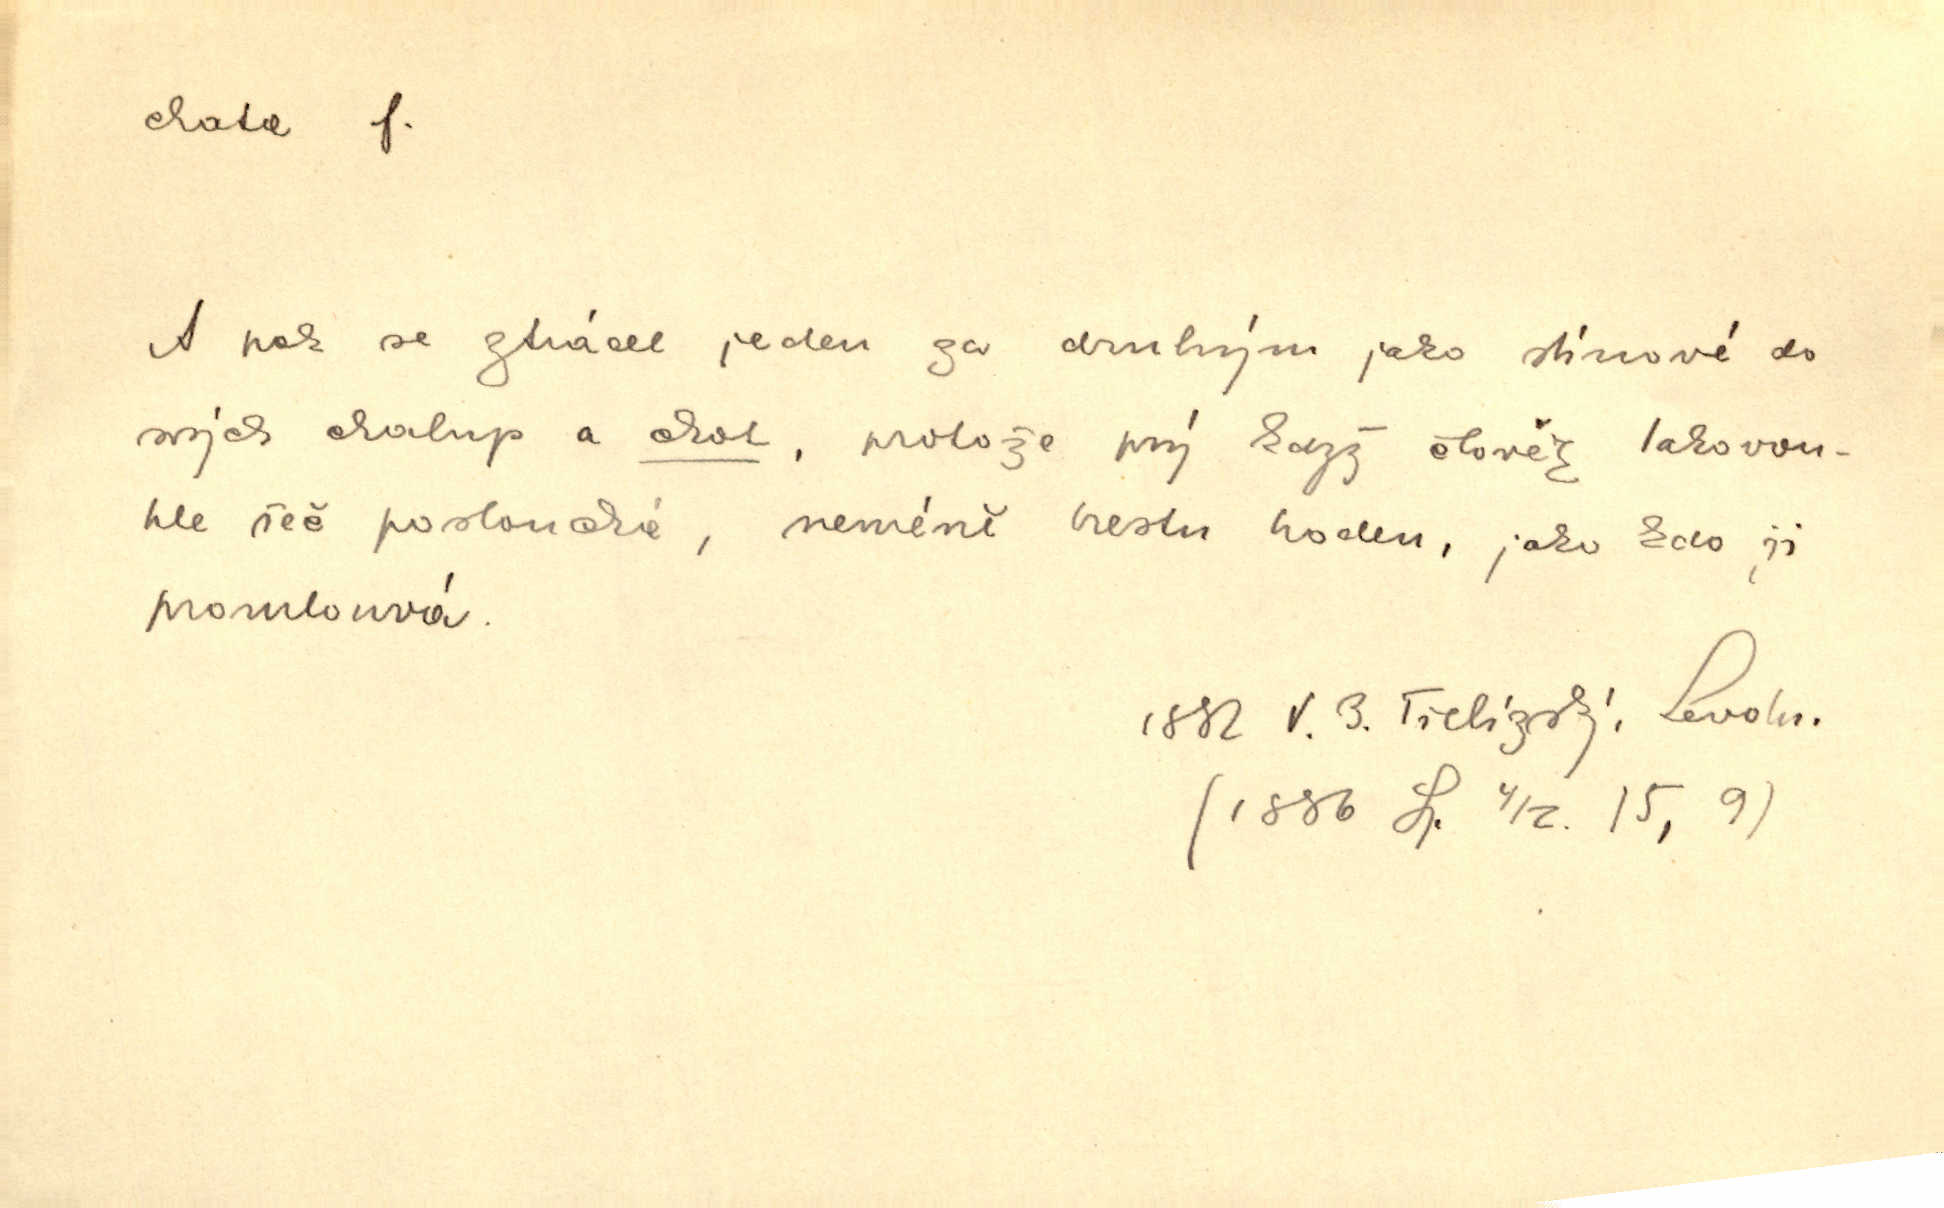 chata f.
A pak se ztrácel jeden za druhým jako stínové do
svých chalup a chat, protože prý když člověk takovou-
hle řeč poslouchá, neméně trestu hoden, jako kdo ji
promlouvá.
1882 V. B. Třebízský,
(1886 Sp. 4/2. 15, 9)